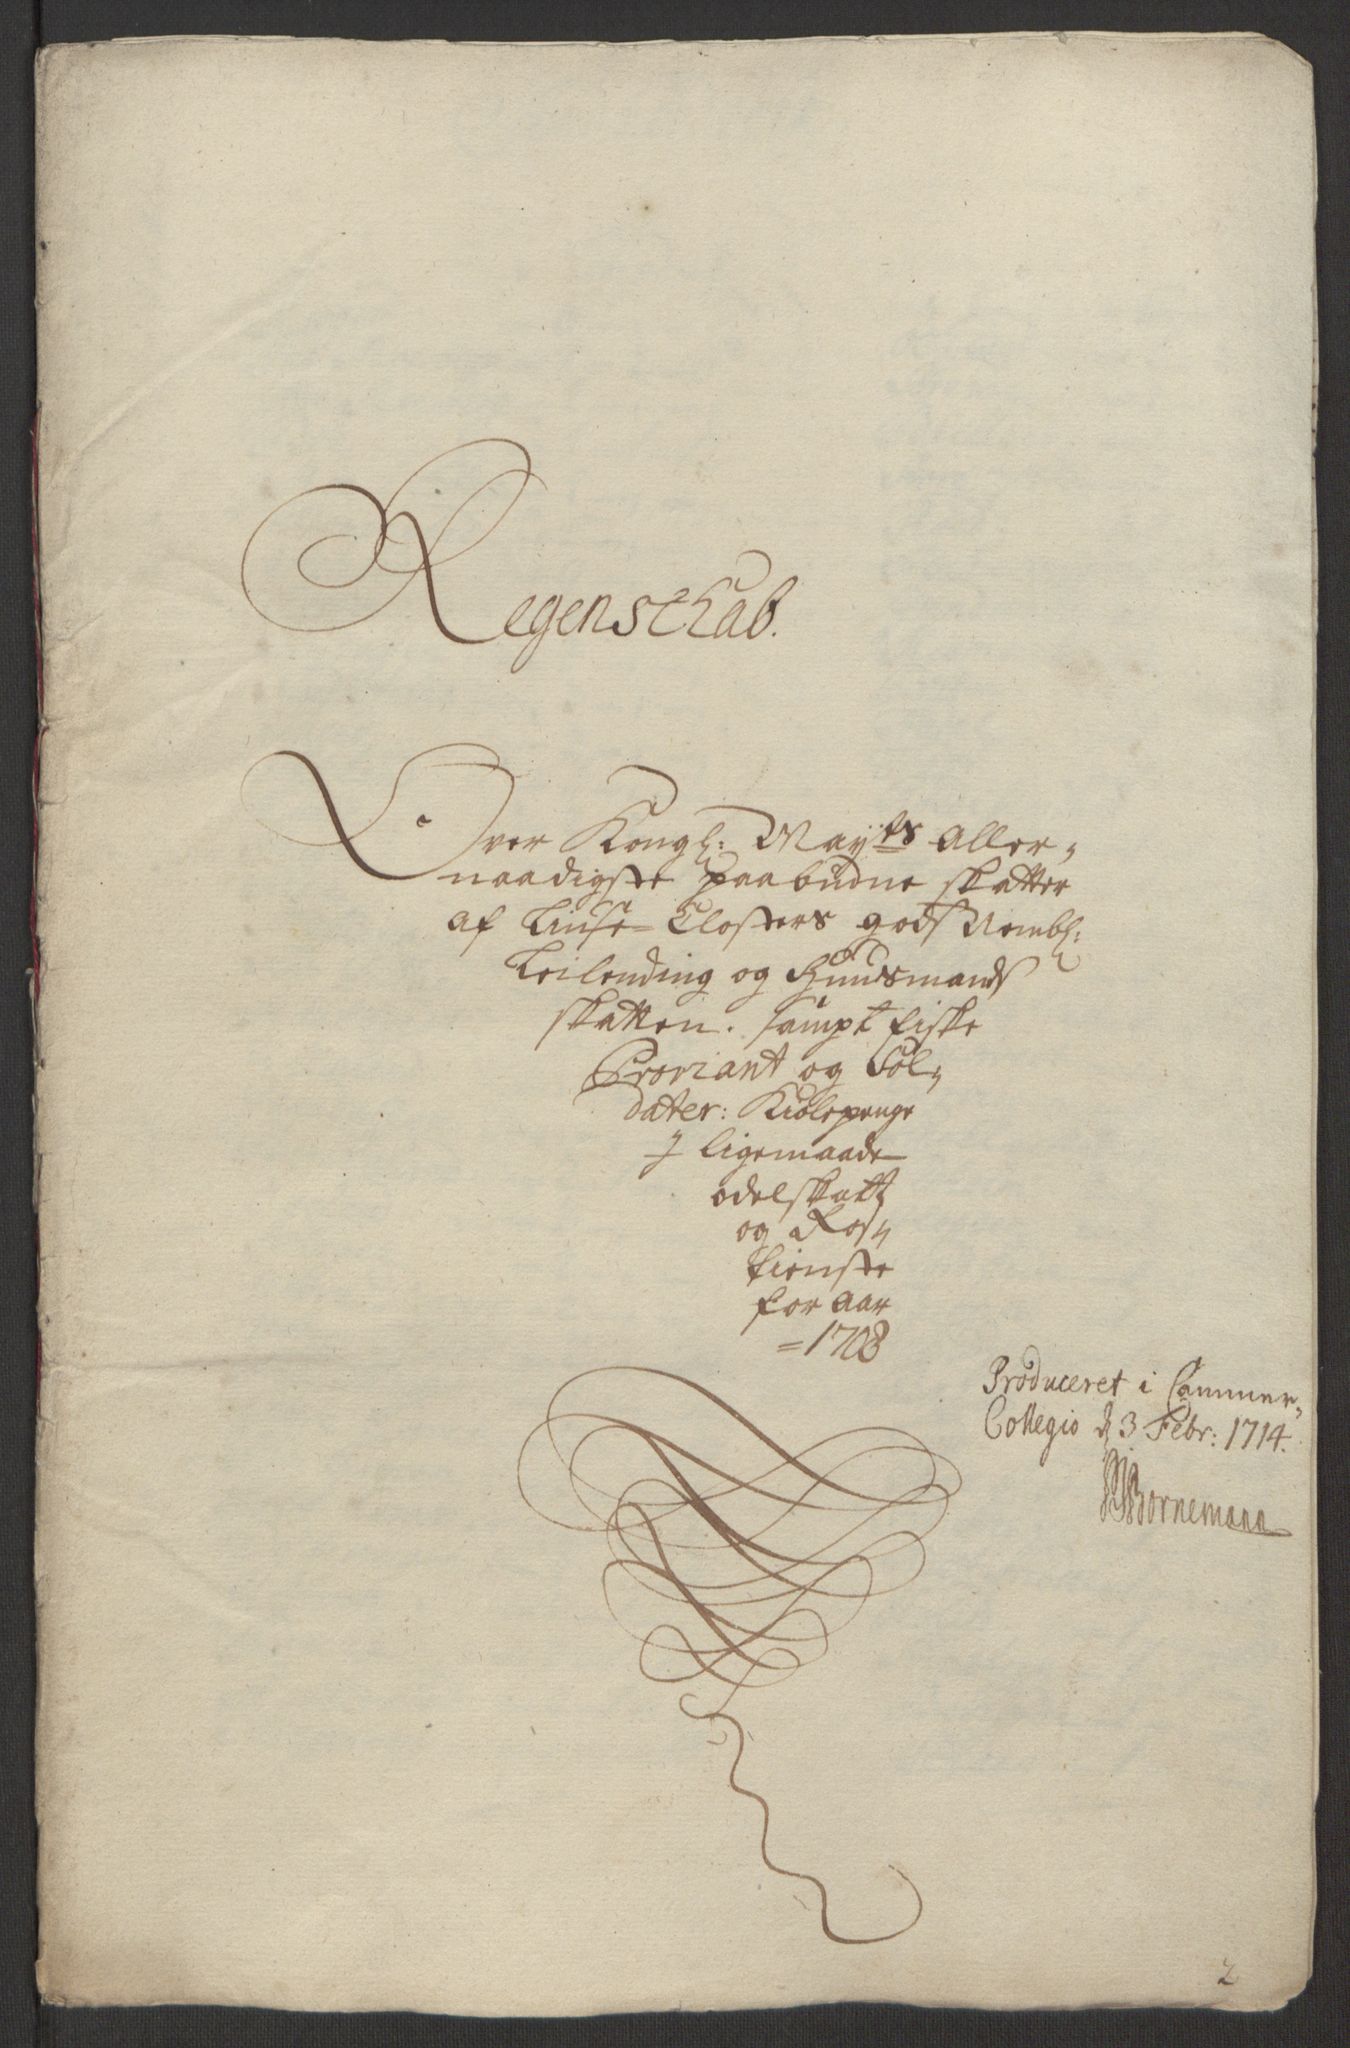 Regenschab.
Over Kongl: Mayts Aller-
naadigste paabudne skatter
af Liuse- Closters gods Nembl:
Leilending og Huusmands
skatten. sampt fiske
Proviant og Sol-
dater: Kiolepenge
j ligemaade
odelskatt
og Ros-
tienste
for Aar
=1708
Produceret i Cammer-
Collegio d 3 Febr: 1714.
Bornemann
2